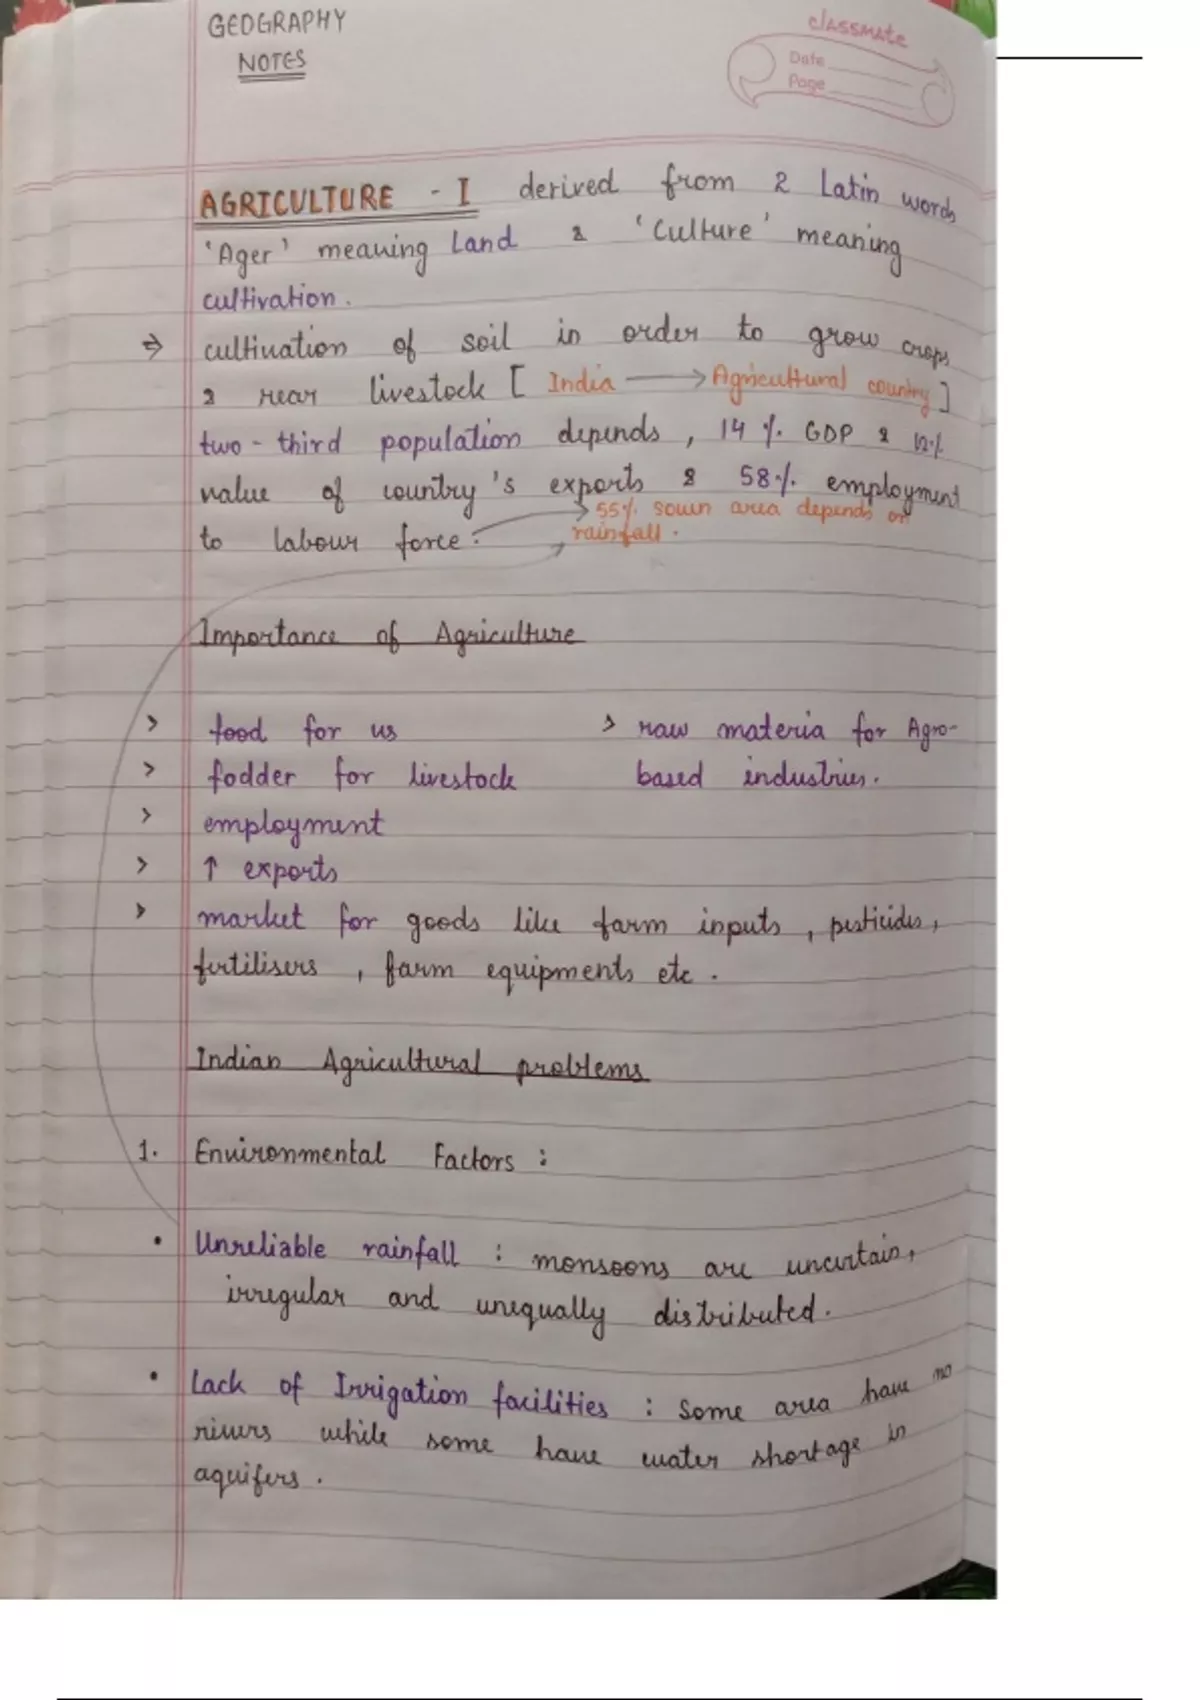 GEOGRAPHY
NOTES
classmate
Date
Page
AGRICULTURE - I derived from 2 Latin words
'Ager' meaning Land & 'Culture' meaning
cultivation.
⇒ cultivation of soil in order to grow crops
& rear livestock [ India → Agricultural country ]
two-third population depends, 14 % GDP & 12%
value of country's exports & 58% employment
→ 55% sown area depends on
to labour force.
rainfall.
Importance of Agriculture
> food for us
> fodder for livestock
> employment
> ↑ exports
> raw materia for Agro-
based industries.
> market for goods like farm inputs, pesticides,
fertilisers, farm equipments etc.
Indian Agricultural problems
1. Environmental Factors :
• Unreliable rainfall : monsoons are uncertain,
irregular and unequally distributed.
• Lack of Irrigation facilities : some area have no
rivers while some have water shortage in
aquifers.